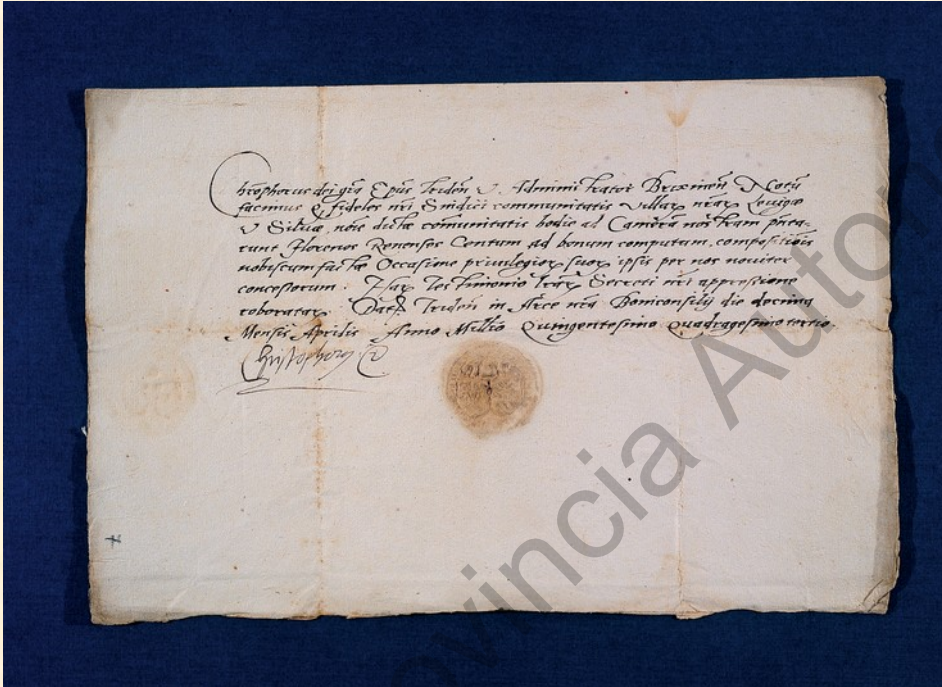 Chrophorus dei gra Epus Triden &c. Administrator Brixinen Notu
facimus q fideles nri Sindici communitatis Villar nrar Leuigo
& Siluæ, noie dictæ comunitatis hodie ad Cameram nostram pnta-
runt Florenos Renenses Centum ad bonum computum, compositiois
nobiscum factæ Occasione privilegior suor ipsis per nos noviter
concessorum. Har Testimonio lrar Secreti nri appressione
roboratar. Dat Triden in Arce nra Boniconsilij die decima
Mensis Aprilis Anno Millio Quingentesimo Quadragesimo tertio.
Provincia Auto